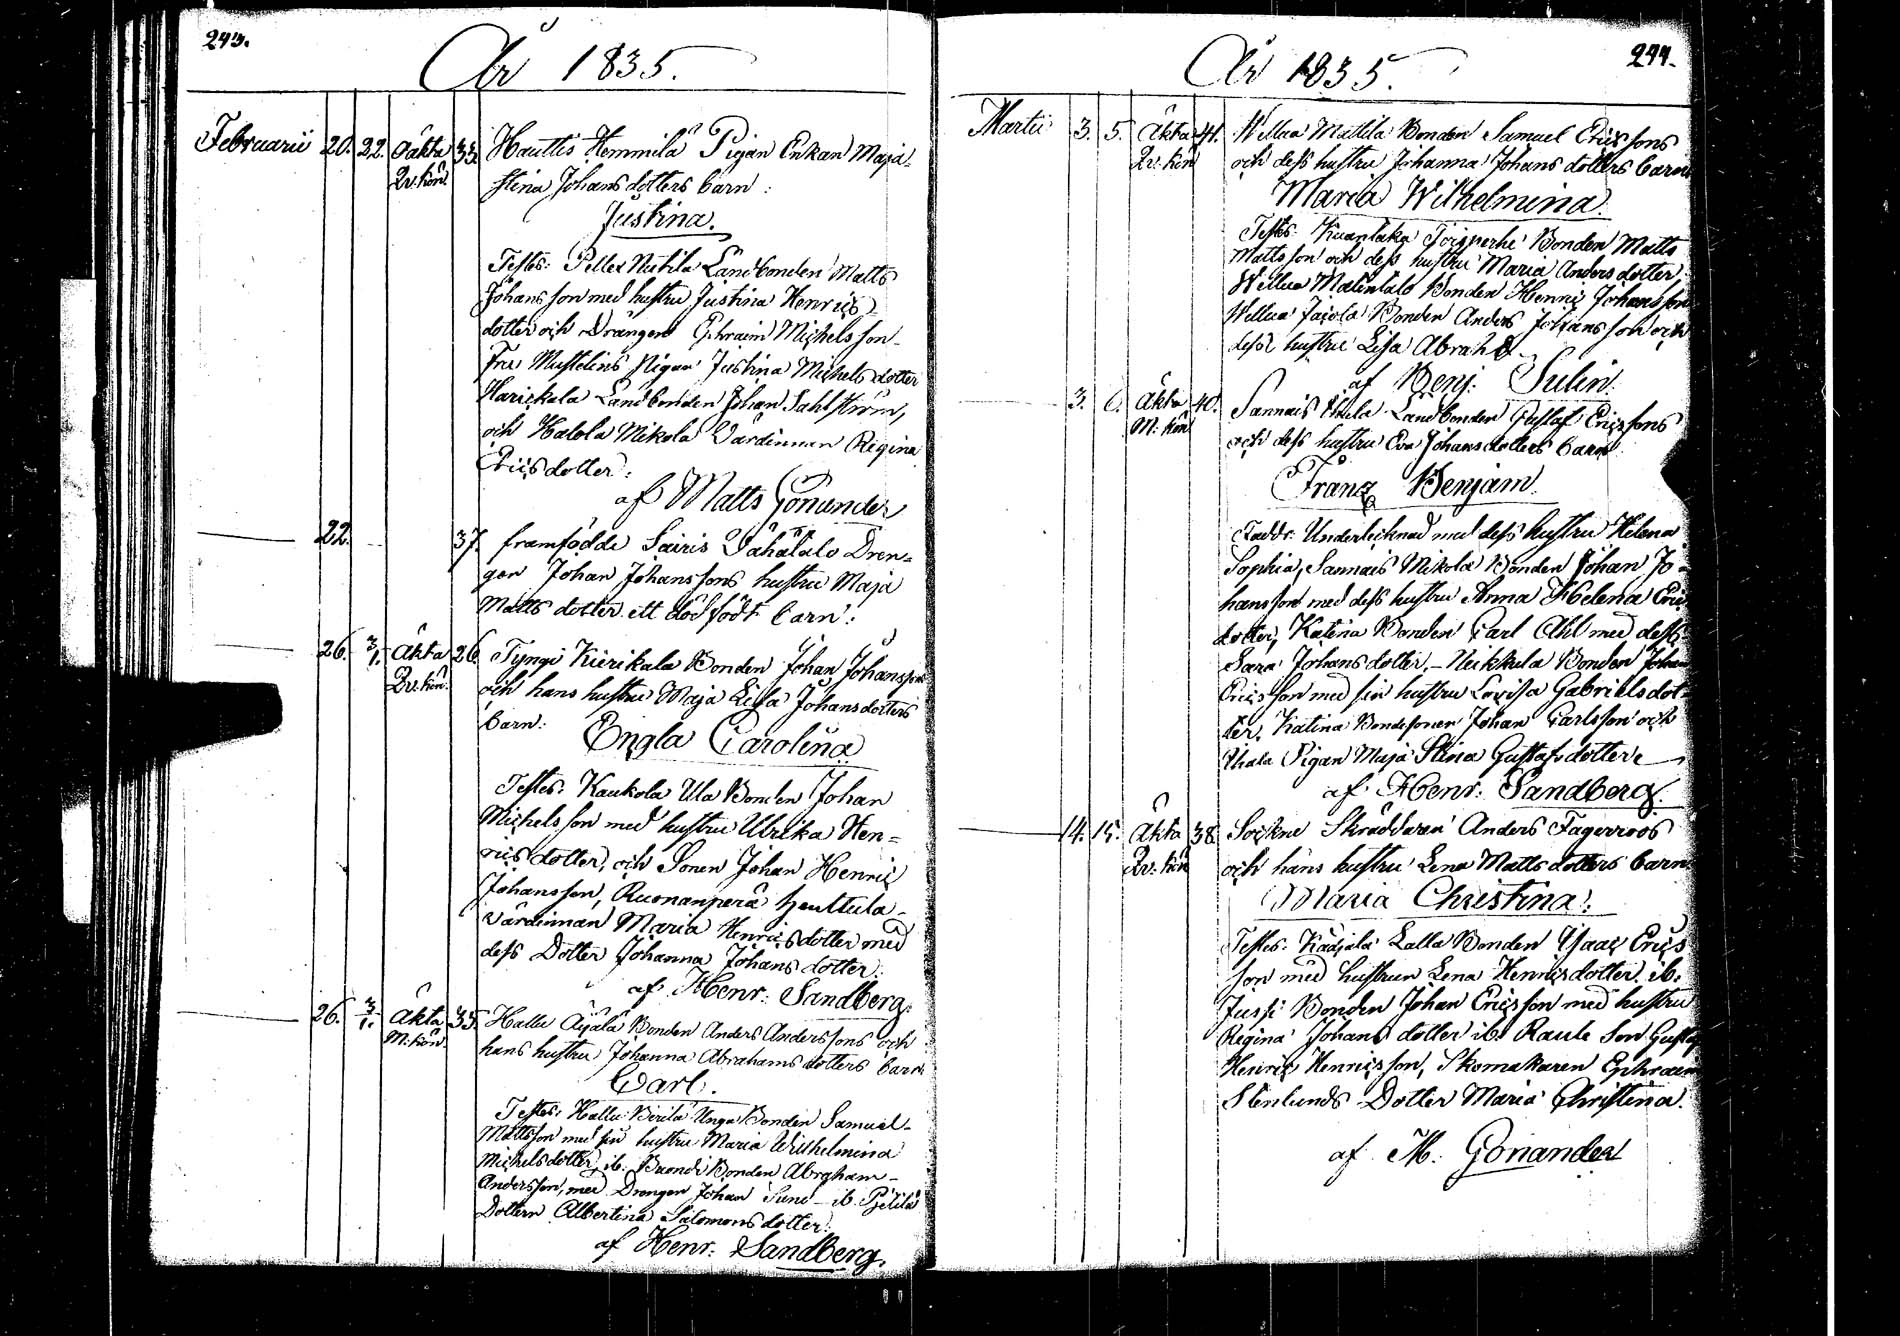 243.
År 1835.
Februarii 20. 22. oäkta 33. Hauttis Hemmilä Pigan Enkan Maja
Qv: kön stina Johansdotters barn:
Justina.
Testes: Landbonden Matts
Johansson med hustru Justina Henrics
dotter och Drängen Ephraim Michelsson
Fru Mustelins Pigan Justina Michelsdotter
Landbonden Johan Sahlström,
och Halola Mikola Värdinnan Regina
Ericsdotter:
af Matts Gonander
22. 37. framfödde Sairis Vähätalo Dren=
gen Johan Johanssons hustru Maja
Matts dotter ett dödfödt barn:
26. 3/1. äkta 26. Tyngi Kierikala Bonden Johan Johansson
Qv: kön. och hans hustru Maja Lisa Johansdotters
barn:
Engla Carolina
Testes: Kaukola Ula Bonden Johan
Michelsson med hustru Ulrika Hen=
rics dotter, och Sonen Johan Henric
Johansson, Ruonanperä Heulula
värdinnan Maria Henricsdotter med
dess Dotter Johanna Johansdotter.
af Henr: Sandberg.
26. 3/1. äkta 35. Hallu Äijälä Bonden Anders Anderssons och
M: kön hans hustru Johanna Abrahamsdotters barn
Carl.
Testes: Hallu Unga Bonden Samuel
Mattsson med sin hustru Maria Wilhelmina
Michelsdotter, ib. Bonden Abraham
Andersson, med Drengen Johan Sund ib.
Dottern Albertina Salomonsdotter.
af Henr: Sandberg.
244.
År 1835.
Martii 3. 5. äkta 41. Willua Mattila Bonden Samuel Ericssons
Qv: kön och dess hustru Johanna Johansdotters barn
Maria Wilhelmina.
Testes: Bonden Matts
Mattsson och dess hustru Maria Andersdotter
Willua Bonden Henric Johansson
Willua Jaicola Bonden Anders Johansson och
dess hustru Lisa Abrah: d.
af Benj: Sulin.
3. 6. äkta 40. Sannais Uhala Landbonden Gustaf Ericssons
M: kön och dess hustru Eva Johansdotters barn
Franz Benjam.
Faddr. Undertecknad med dess hustru Helena
Sophia, Sannais Mikola Bonden Johan Jo=
hansson med dess hustru Anna Helena Erics
dotter, Katina Bonden Carl Ahl med dess
Sara Johansdotter, Neikkula Bonden Johan
Ericsson med sin hustru Lovisa Gabrielsdot=
ter, Katina Bondesonen Johan Carlsson och
Uhala Pigan Maja Stina Gustafsdotter
af Henr: Sandberg.
14. 15. äkta 38. Sockne Skräddaren Anders Fagerroos
Qv: kön och hans hustru Lena Mattsdotters barn
Maria Christina:
Testes: Kädjälä Lalla Bonden Isaac Erics
son med hustrun Lena Henricsdotter. ib.
Jussi Bonden Johan Ericsson med hustru
Regina Johansdotter ib. Raula Son Gustaf
Henric Henricsson, Skomakaren Ephraim
Stenlunds Dotter Maria Christina.
af M: Gonander